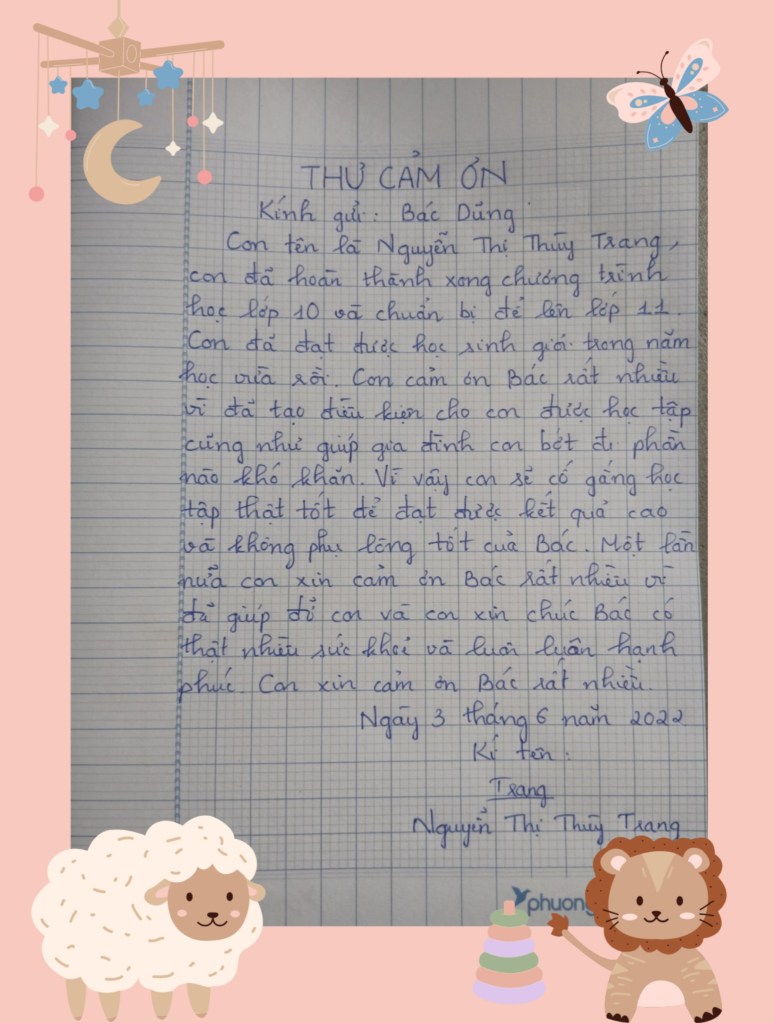 THƯ CẢM ƠN
Kính gửi: Bác Dũng
Con tên là Nguyễn Thị Thùy Trang,
con đã hoàn thành xong chương trình
học lớp 10 và chuẩn bị để lên lớp 11.
Con đã đạt được học sinh giỏi trong năm
học vừa rồi. Con cảm ơn Bác rất nhiều
vì đã tạo điều kiện cho con được học tập
cũng như giúp gia đình con bớt đi phần
nào khó khăn. Vì vậy con sẽ cố gắng học
tập thật tốt để đạt được kết quả cao
và không phụ lòng tốt của Bác. Một lần
nữa con xin cảm ơn Bác rất nhiều vì
đã giúp đỡ con và con xin chúc Bác có
thật nhiều sức khỏe và luôn luôn hạnh
phúc. Con xin cảm ơn Bác rất nhiều.
Ngày 3 tháng 6 năm 2022
Kí tên:
Trang
Nguyễn Thị Thùy Trang
phuong